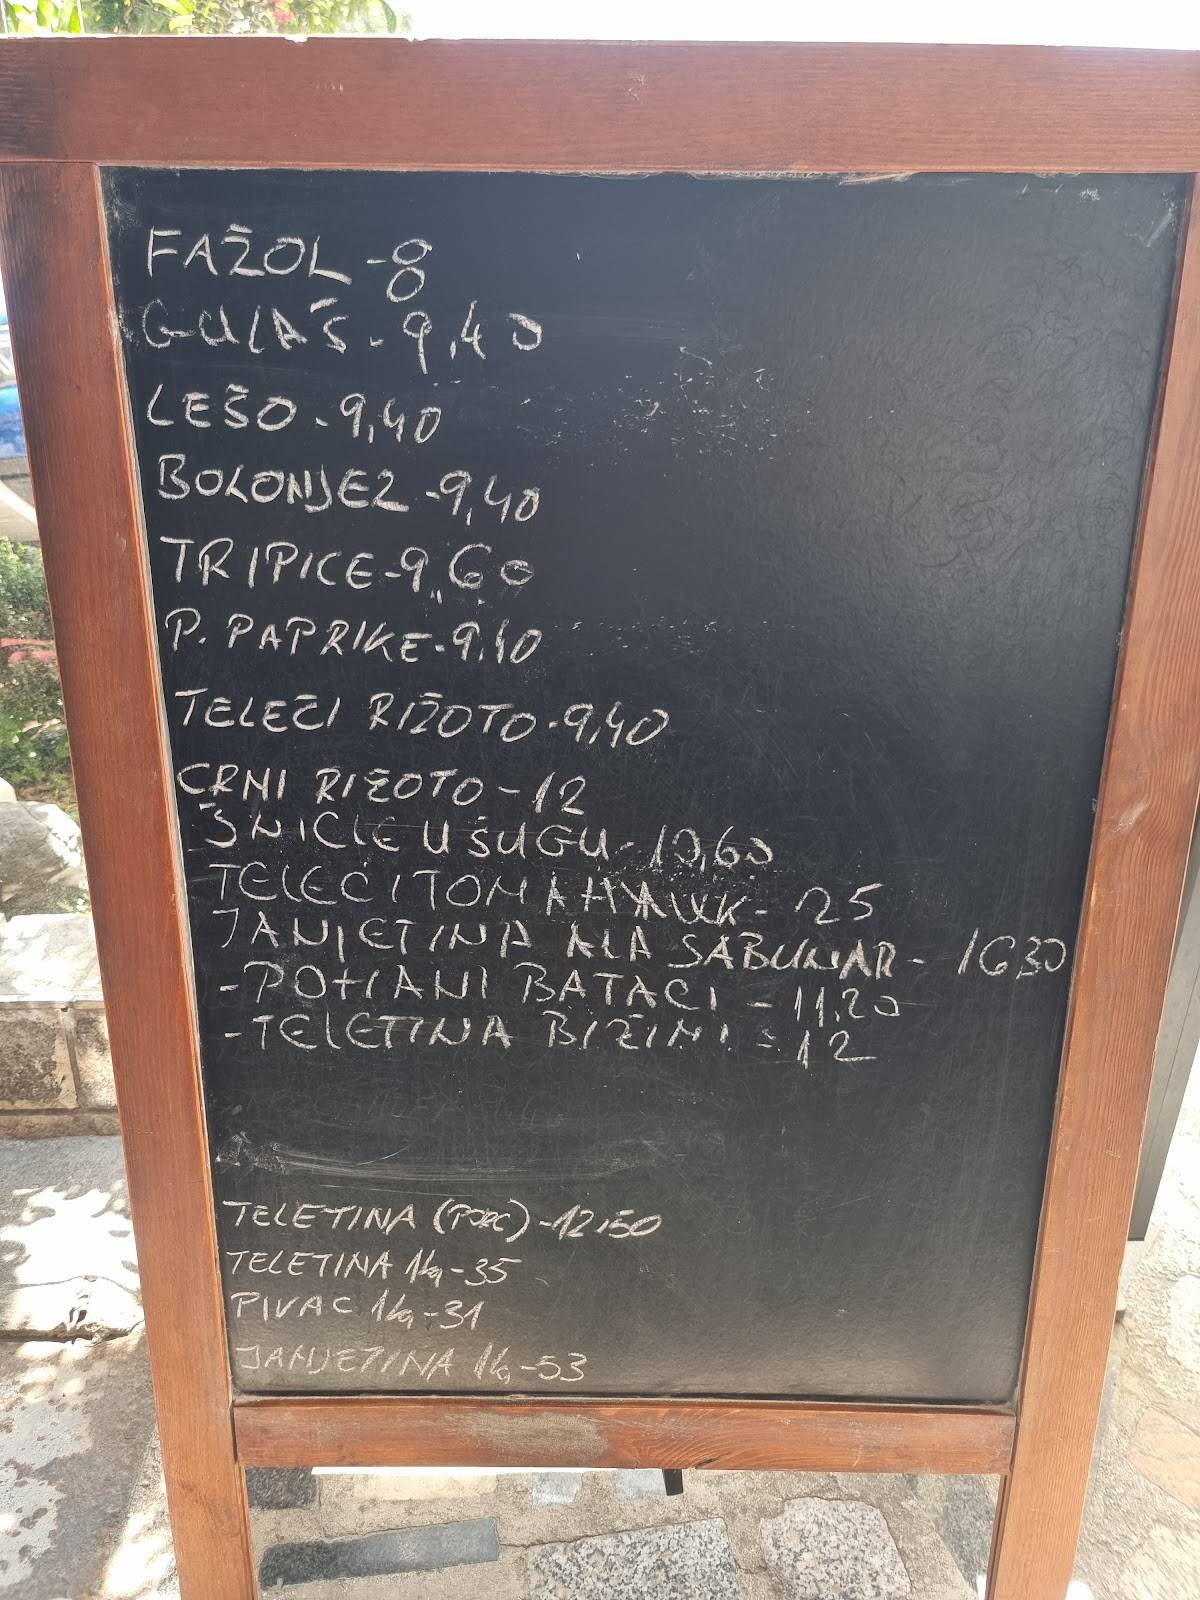 FAŽOL - 8
GULAŠ - 9,40
LEŠO - 9,40
BOLONJEZ - 9,40
TRIPICE - 9,60
P. PAPRIKE - 9.40
TELEČI RIŽOTO - 9,40
CRNI RIŽOTO - 12
ŠNICLE U ŠUGU - 10,60
TELECI TOMAHAWK - 25
JANJETINA ALA SABUNAR - 1630
- POHANI BATACI - 11,20
- TELETINA BIŽIMI - 12
TELETINA (PORC) - 12,50
TELETINA 1kg - 35
PIVAC 1kg - 31
JANJETINA 1kg - 53